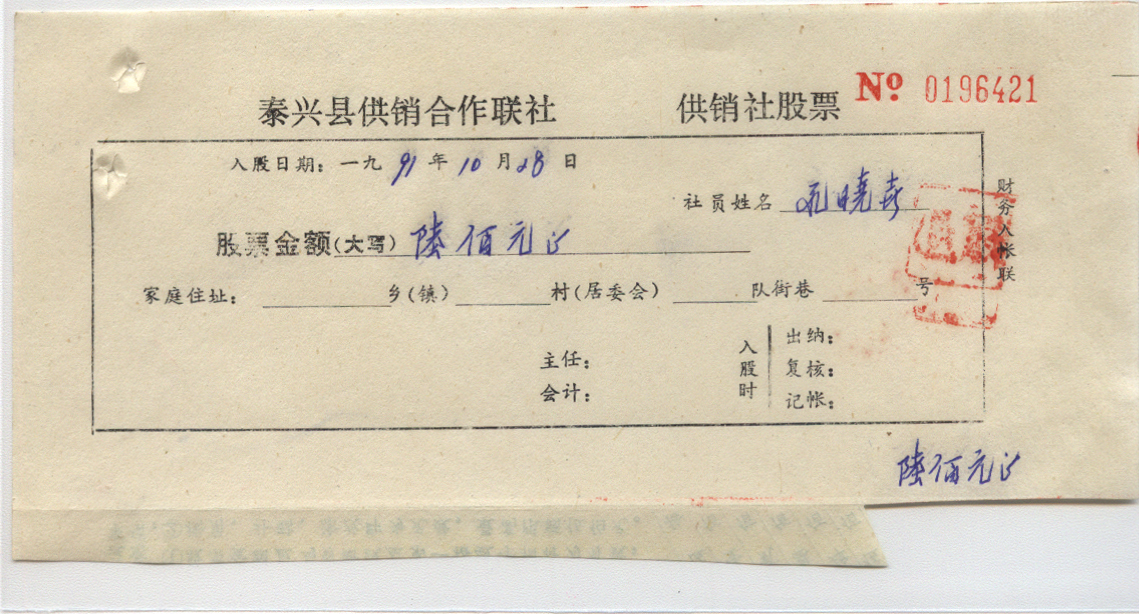 泰兴县供销合作联社 供销社股票 № 0196421
入股日期：一九91年10月28日
社员姓名 晓春
股票金额(大写) 陆佰元正
家庭住址： 乡(镇) 村(居委会) 队街巷 号
主任：
会计：
入股时
出纳：
复核：
记帐：
财务入帐联
陆佰元正